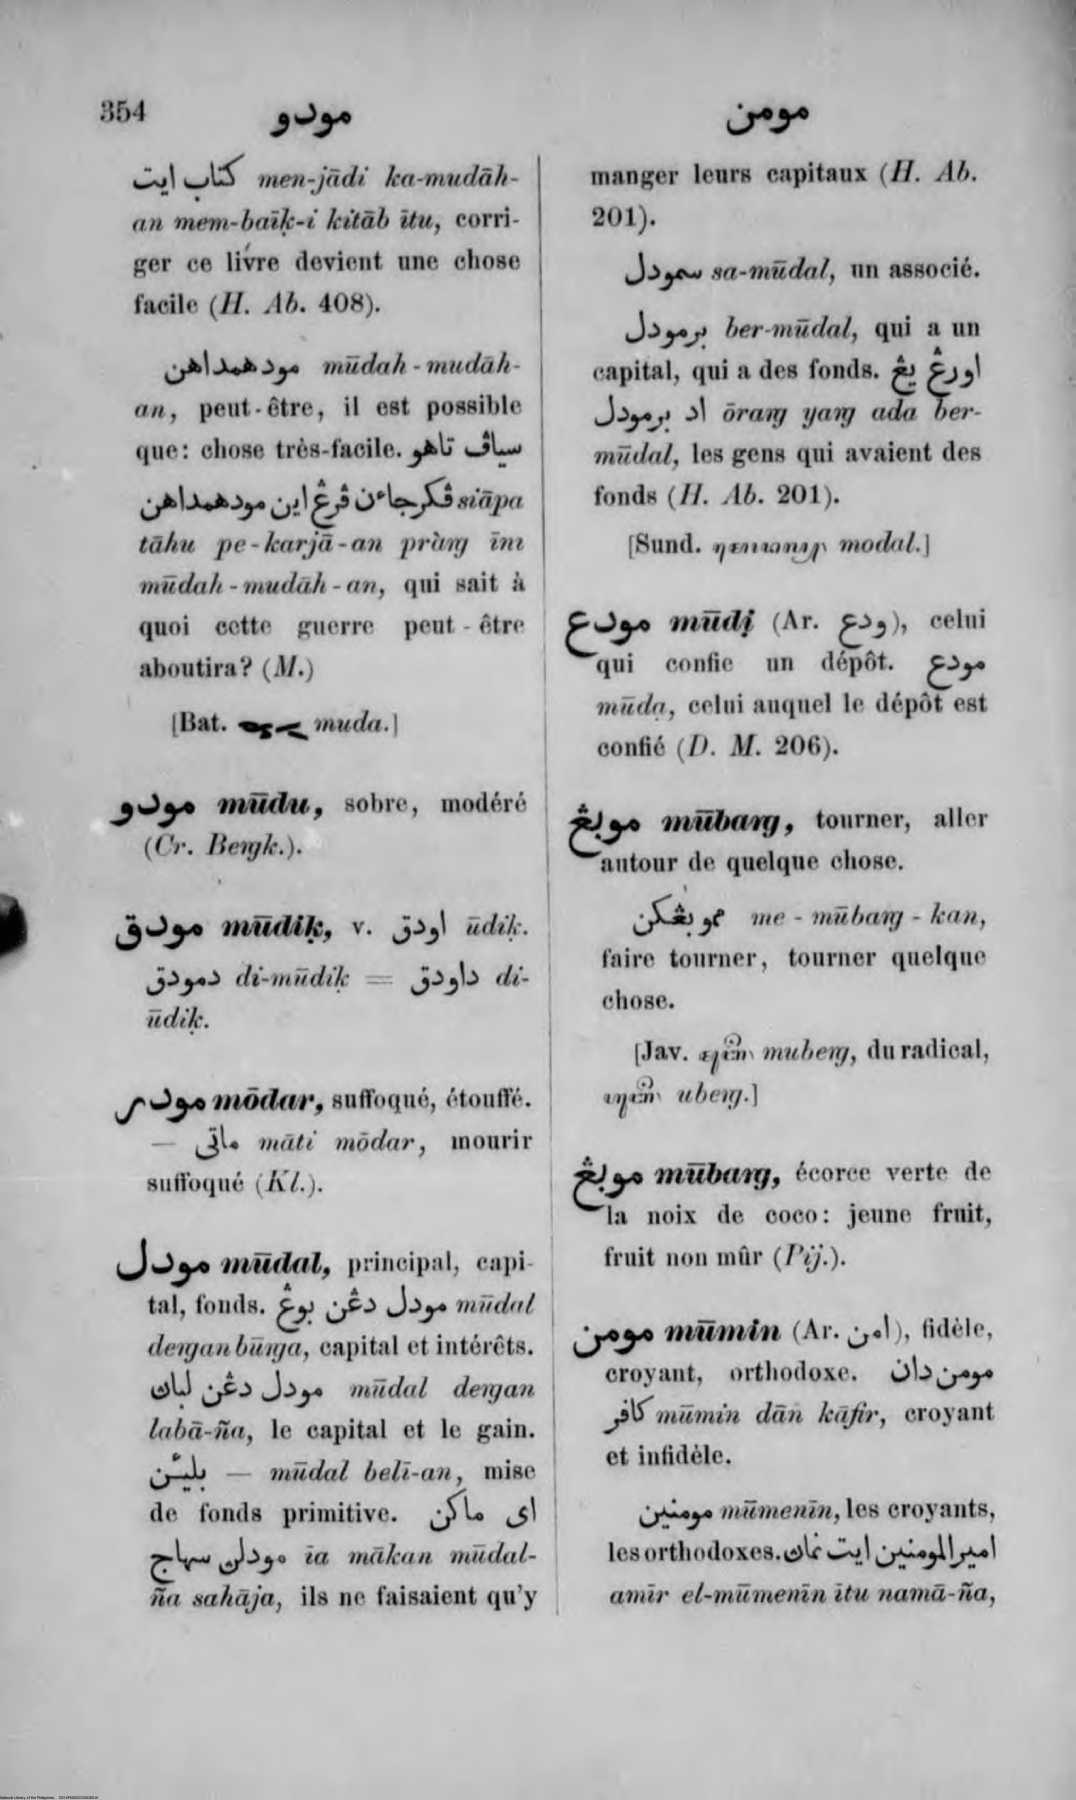 354
مودو
مومن
كتاب ايت men-jādi ka-mudāh-
an mem-baīḳ-i kitāb ītu, corri-
ger ce livre devient une chose
facile (H. Ab. 408).
مودهمداهن mūdah-mudāh-
an, peut-être, il est possible
que: chose très-facile. سياڤ تاهو
ڤكرجاءن ڤرڠ اين مودهمداهن siāpa
tāhu pe-karjā-an pràrg īni
mūdah-mudāh-an, qui sait à
quoi cette guerre peut-être
aboutira? (M.)
[Bat. muda.]
مودو mūdu, sobre, modéré
(Cr. Bergk.).
مودق mūdiḳ, v. اودق ūdiḳ.
دمودق di-mūdiḳ = داودق di-
ūdiḳ.
مودر mōdar, suffoqué, étouffé.
— ماتى māti mōdar, mourir
suffoqué (Kl.).
مودل mūdal, principal, capi-
tal, fonds. مودل دڠن بوڠ mūdal
dergan būrga, capital et intérêts.
مودل دڠن لباڽ mūdal dergan
labā-ña, le capital et le gain.
بليئن — mūdal belī-an, mise
de fonds primitive. اى ماكن
مودلڽ سهاج īa mākan mūdal-
ña sahāja, ils ne faisaient qu'y
manger leurs capitaux (H. Ab.
201).
سمودل sa-mūdal, un associé.
برمودل ber-mūdal, qui a un
capital, qui a des fonds. اورڠ يڠ
اد برمودل ōrarg yarg ada ber-
mūdal, les gens qui avaient des
fonds (H. Ab. 201).
[Sund. modal.]
مودع mūdị (Ar. ودع), celui
qui confie un dépôt. مودع
mūdạ, celui auquel le dépôt est
confié (D. M. 206).
موبڠ mūbarg, tourner, aller
autour de quelque chose.
مموبڠكن me-mūbarg-kan,
faire tourner, tourner quelque
chose.
[Jav. muberg, du radical,
uberg.]
موبڠ mūbarg, écorce verte de
la noix de coco: jeune fruit,
fruit non mûr (Pij.).
مومن mūmin (Ar. امن), fidèle,
croyant, orthodoxe. مومن دان
كافر mūmin dān kāfir, croyant
et infidèle.
مومنين mūmenīn, les croyants,
les orthodoxes. اميرالمومنين ايت نماڽ
amīr el-mūmenīn ītu namā-ña,